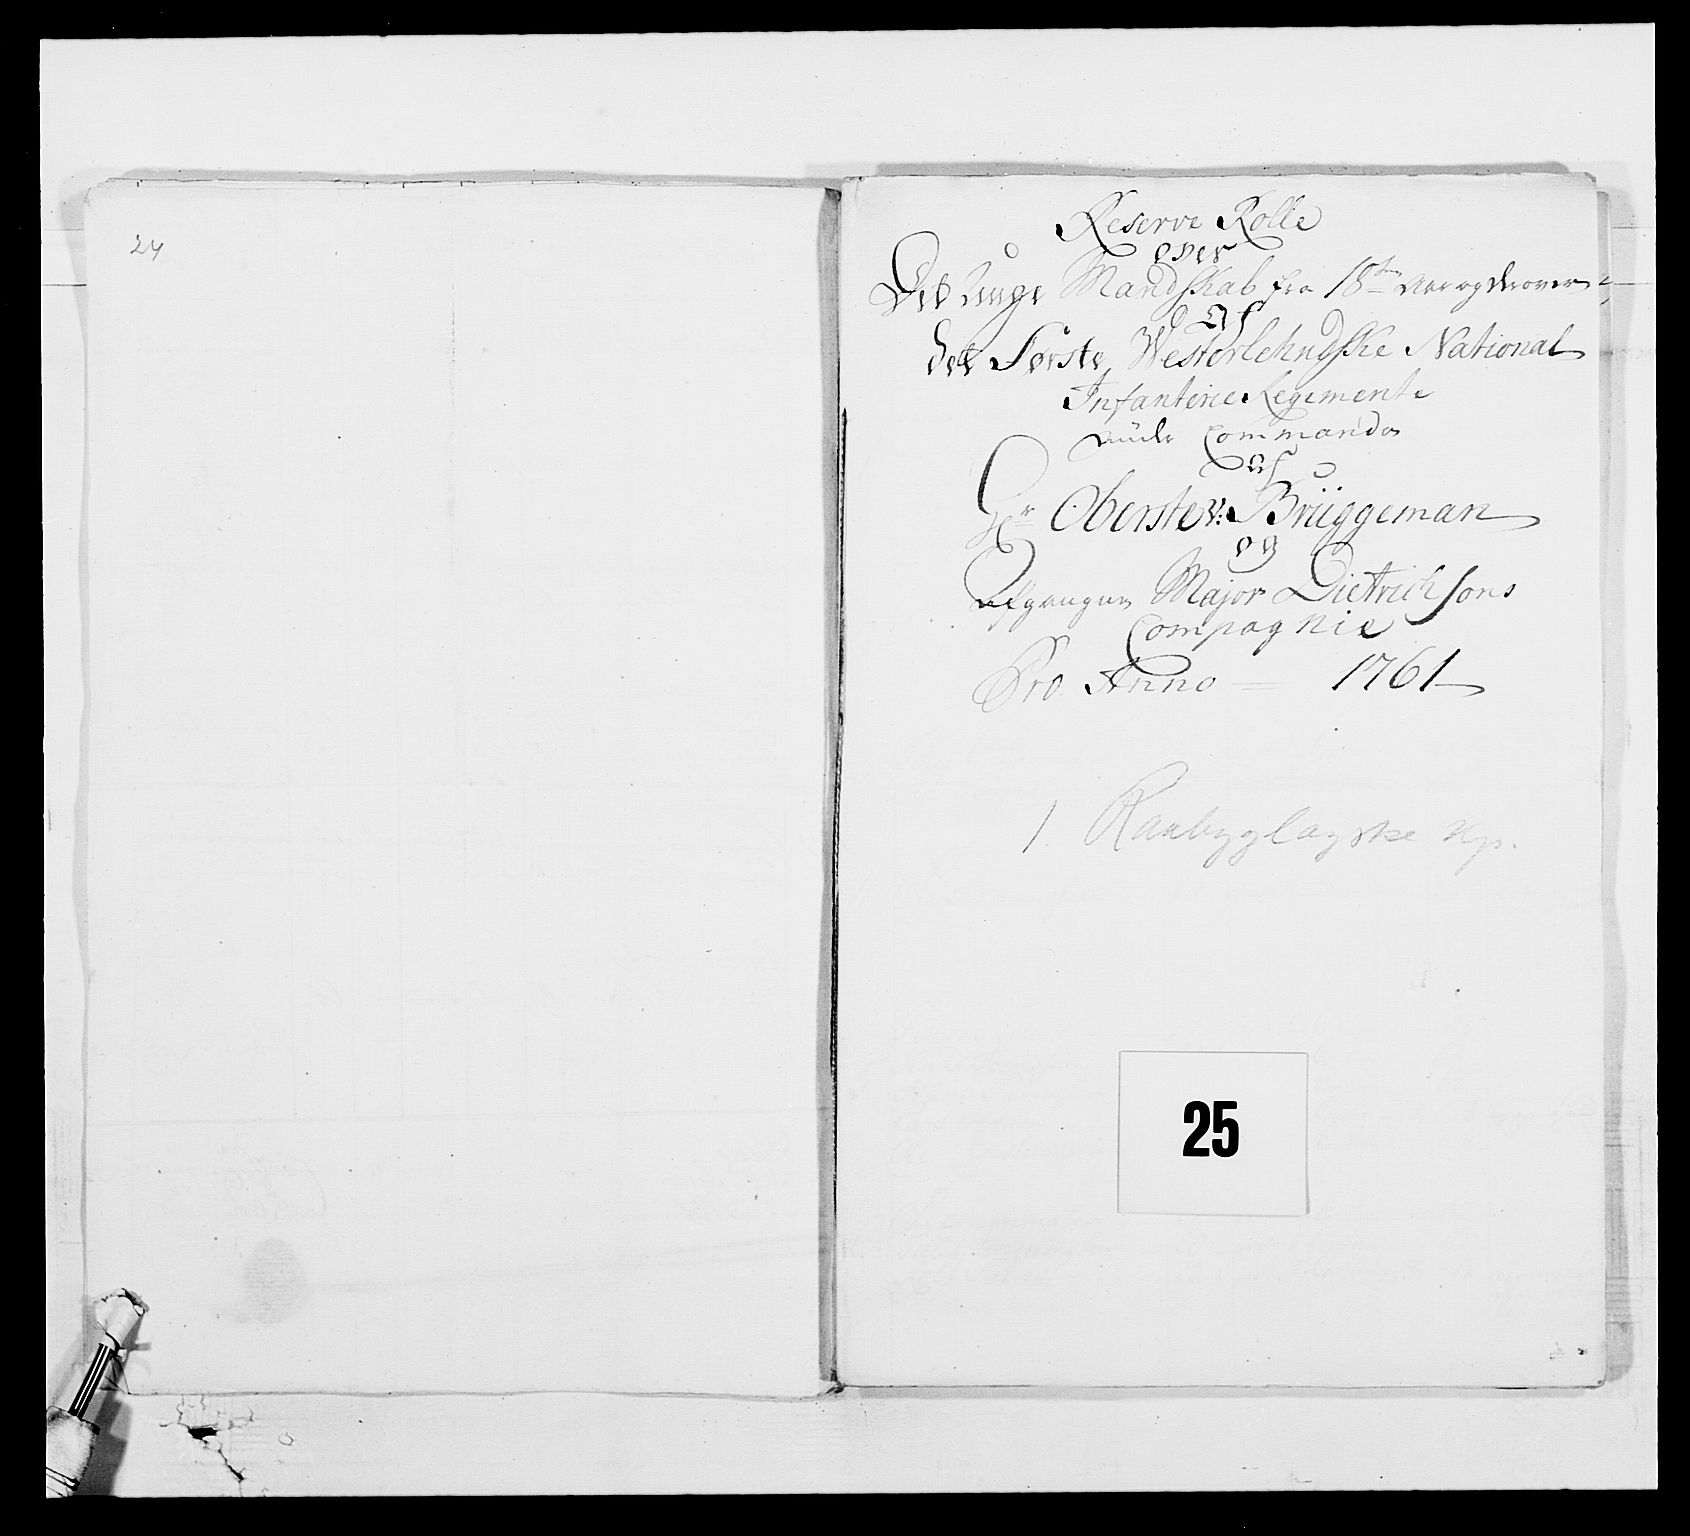 24
Reserve Rolle
over
Det Unge Mandskab fra 18ten Aar og derover
Af
det Første Westerlehndske National
Infanterie Regimente
under Commando
af
Hr Oberste v: Brüggeman
og
afgangne Major Dietrichsons
Compagnie
Pro Anno = 1761
1. Raabyglagske Kp.
25